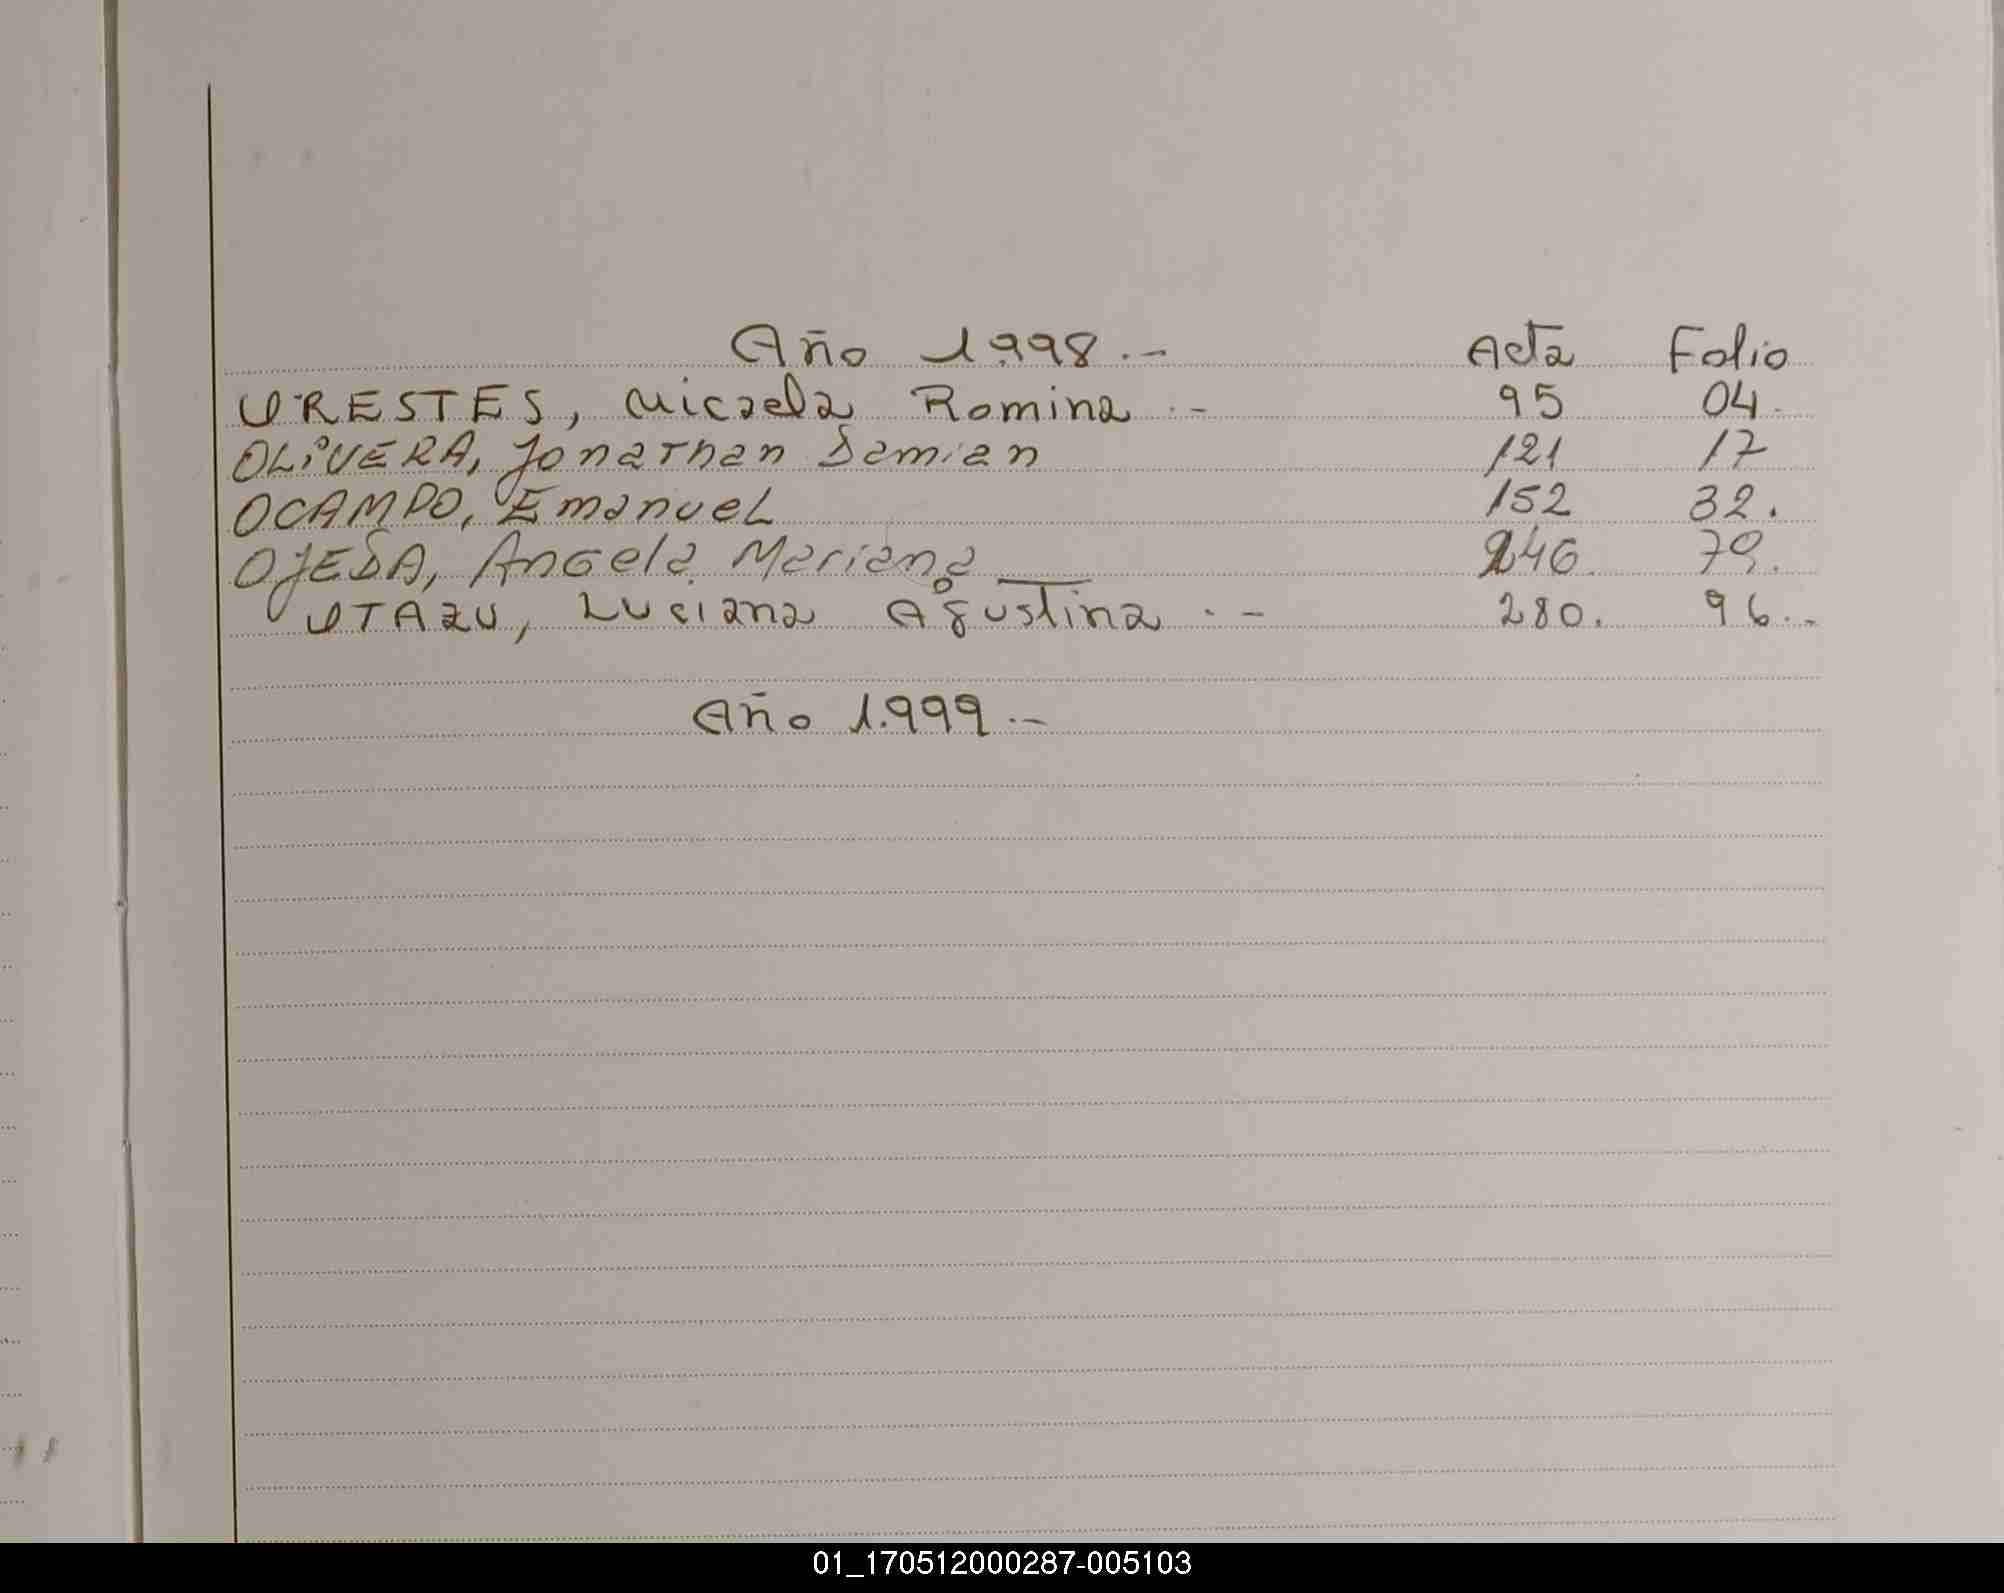 Año 1.998.- Acta Folio
ORESTES, Micaela Romina .- 95 04.
OLiVERA, Jonathan Damian 121 17
OCAMPO, EmanueL 152 32.
OJEDA, AnGela Mariana 246. 79.
OTAZU, Luciana Agustina .- 280. 96.-
Año 1.999.-
01_170512000287-005103